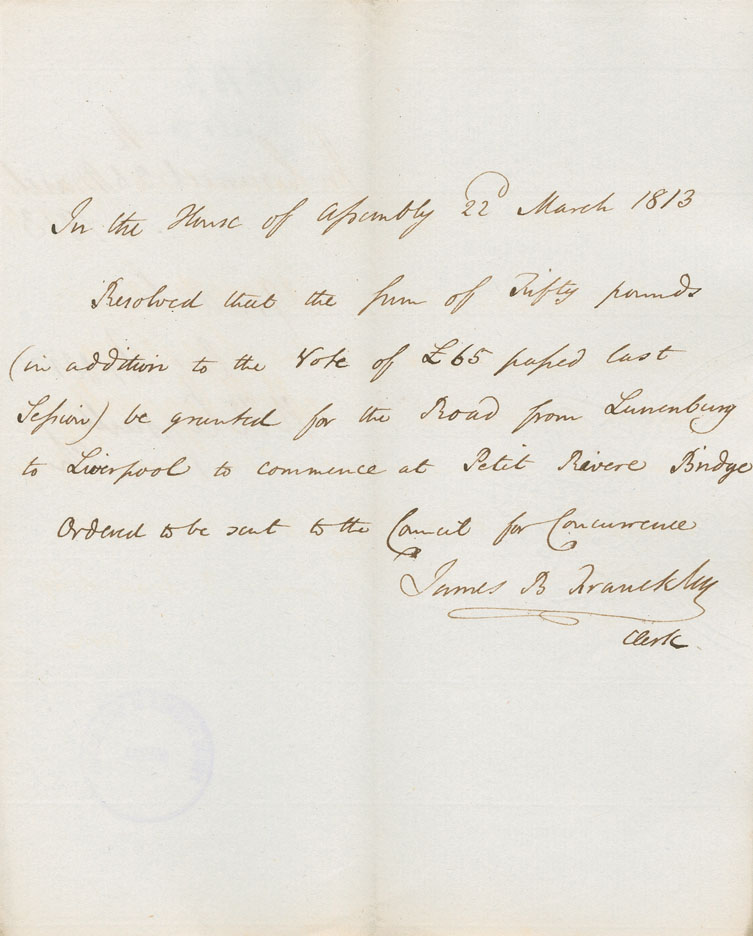 In the House of Assembly 22d March 1813
Resolved that the sum of Fifty pounds
(in addition to the Vote of £65 passed last
Session) be granted for the Road from Lunenburg
to Liverpool to commence at Petit Rivere Bridge
Ordered to be sent to the Council for Concurrence
James B Franckley
Clerk